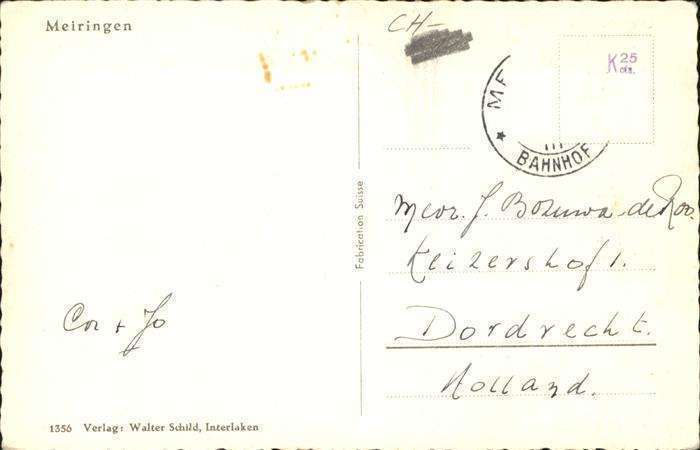 Meiringen
CH-
K 25
cts.
ME
BAHNHOF
Fabrication Suisse
Mevr. J. Bozuwa-de Roo.
Keizershof 1.
Dordrecht.
Holland.
Cor + Jo
1356 Verlag: Walter Schild, Interlaken